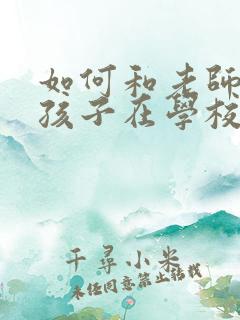 如何和老師
孩子在學校
千尋小米
未經同意禁止轉載